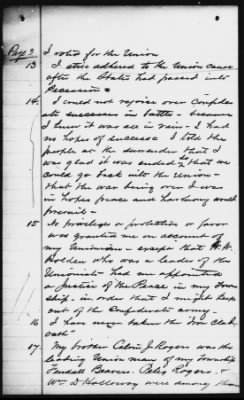 Page 2
I voted for the Union
13 I still adhered to the Union cause
after the State had passed into
Secession
14. I could not rejoice over Confeder
ate successes in battle - because
I knew it was all in vain - I had
no hope of success I told the
people at the surrender that I
was glad it was ended so that we
could go back into the Union -
that the war being over I was
in hopes peace and harmony would
prevail -
15 No privilege or protection or favor
was granted me on account of
my Unionism - except that W. W.
Holden who was a leader of the
Unionists had me appointed
a Justice of the Peace in my town
ship - in order that I might keep
out of the Confederate army -
16 I have never taken the "Iron Clad
oath"
17 My brother Calvin J. Rogers was the
leading Union man of my Township
Fendall Beavers. Peleg Rogers. &
Wm D Holloway were among them